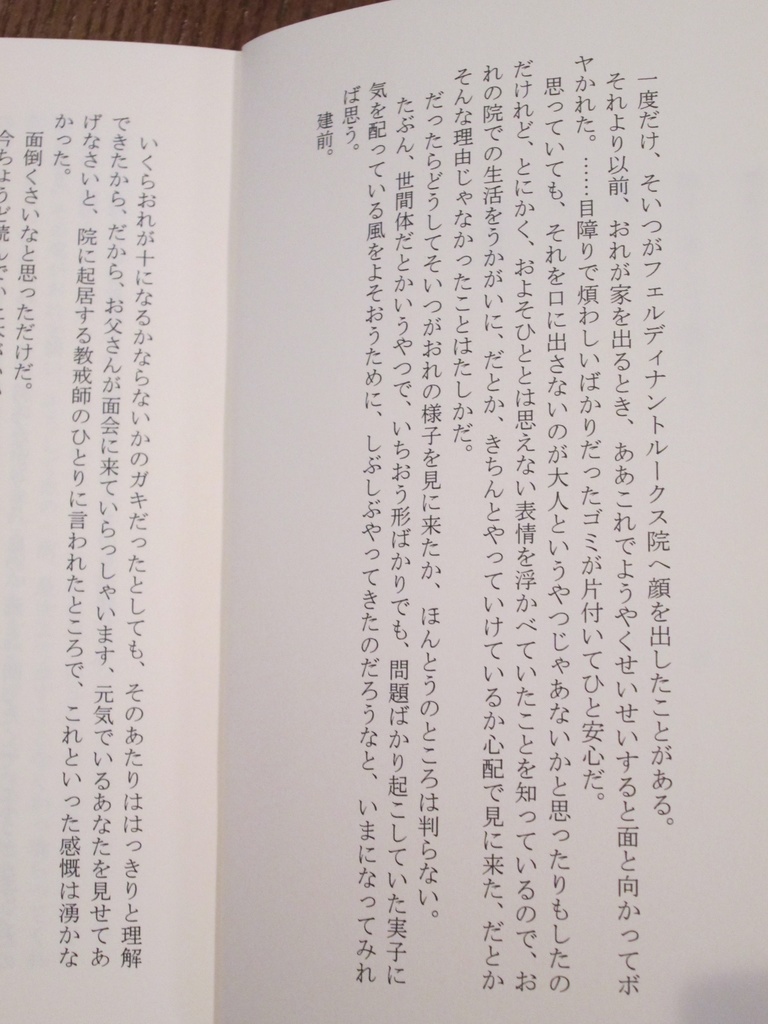 一度だけ、そいつがフェルディナントルークス院へ顔を出したことがある。
それより以前、おれが家を出るとき、ああこれでようやくせいせいすると面と向かってボ
ヤかれた。……目障りで煩わしいばかりだったゴミが片付いてひと安心だ。
思っていても、それを口に出さないのが大人というやつじゃあないかと思ったりもしたの
だけれど、とにかく、およそひととは思えない表情を浮かべていたことを知っているので、お
れの院での生活をうかがいに、だとか、きちんとやっていけているか心配で見に来た、だとか
そんな理由じゃなかったことはたしかだ。
だったらどうしてそいつがおれの様子を見に来たか、ほんとうのところは判らない。
たぶん、世間体だとかいうやつで、いちおう形ばかりでも、問題ばかり起こしていた実子に
気を配っている風をよそおうために、しぶしぶやってきたのだろうなと、いまになってみれ
ば思う。
建前。
いくらおれが十になるかならないかのガキだったとしても、そのあたりははっきりと理解
できたから、だから、お父さんが面会に来ていらっしゃいます、元気でいるあなたを見せてあ
げなさいと、院に起居する教戒師のひとりに言われたところで、これといった感慨は湧かな
かった。
面倒くさいなと思っただけだ。
今ちょうど読んでいた